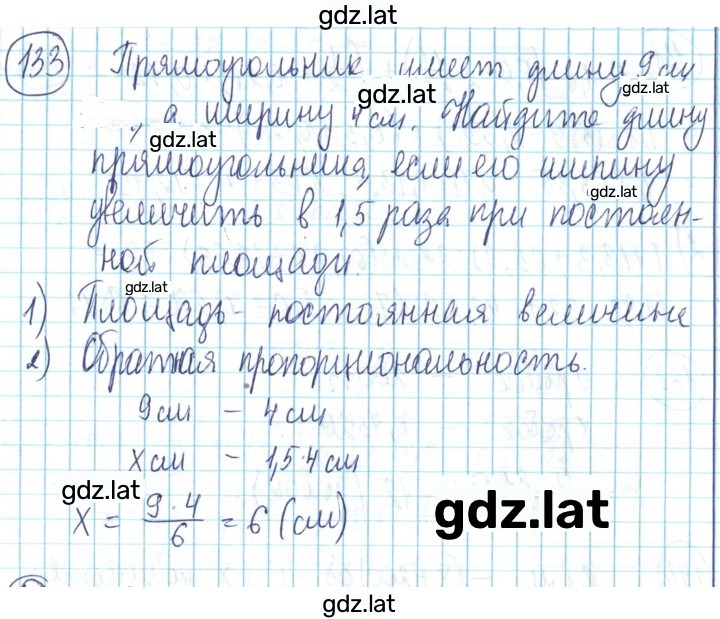 gdz.lat
133 Прямоугольник имеет длину 9 см
gdz.lat
, а ширину 4 см. Найдите длину
gdz.lat
прямоугольника, если его ширину
gdz.lat
увеличить в 1,5 раза при постоян-
ной площади
gdz.lat
1) Площадь - постоянная величина
2) Обратная пропорциональность.
9 см - 4 см
x см - 1,5·4 см
gdz.lat
x = 9·4/6 = 6 (см)
gdz.lat
gdz.lat